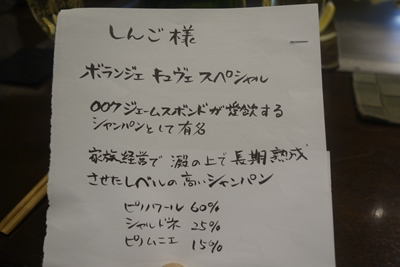 しんご様
ボランジェ キュヴェ スペシャル
007ジェームスボンドが愛飲する
シャンパンとして有名
家族経営で 澱の上で長期熟成
させたレベルの高いシャンパン
ピノノワール 60%
シャルドネ 25%
ピノムニエ 15%